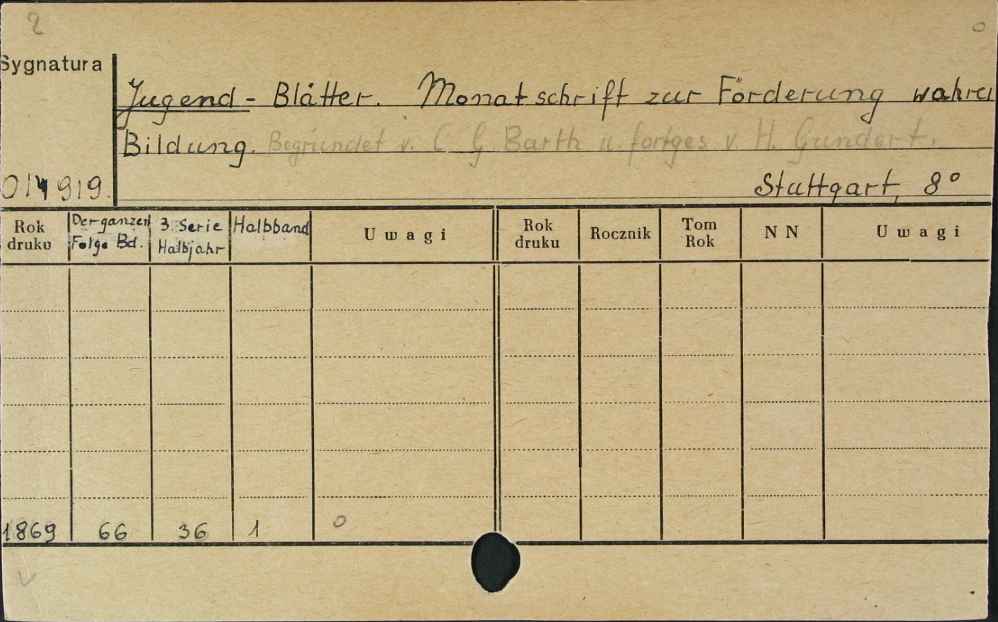 2
0
Sygnatura
Jugend - Blätter. Monatschrift zur Förderung wahrer
Bildung. Begründet v. C G Barth u. fortges v H. Gundert.
014919.
Stuttgart, 8°
Rok druku
Der ganzen Folge Bd.
3. Serie Halbjahr
Halbband
Uwagi
Rok druku
Rocznik
Tom Rok
NN
Uwagi
1869 66 36 1 0